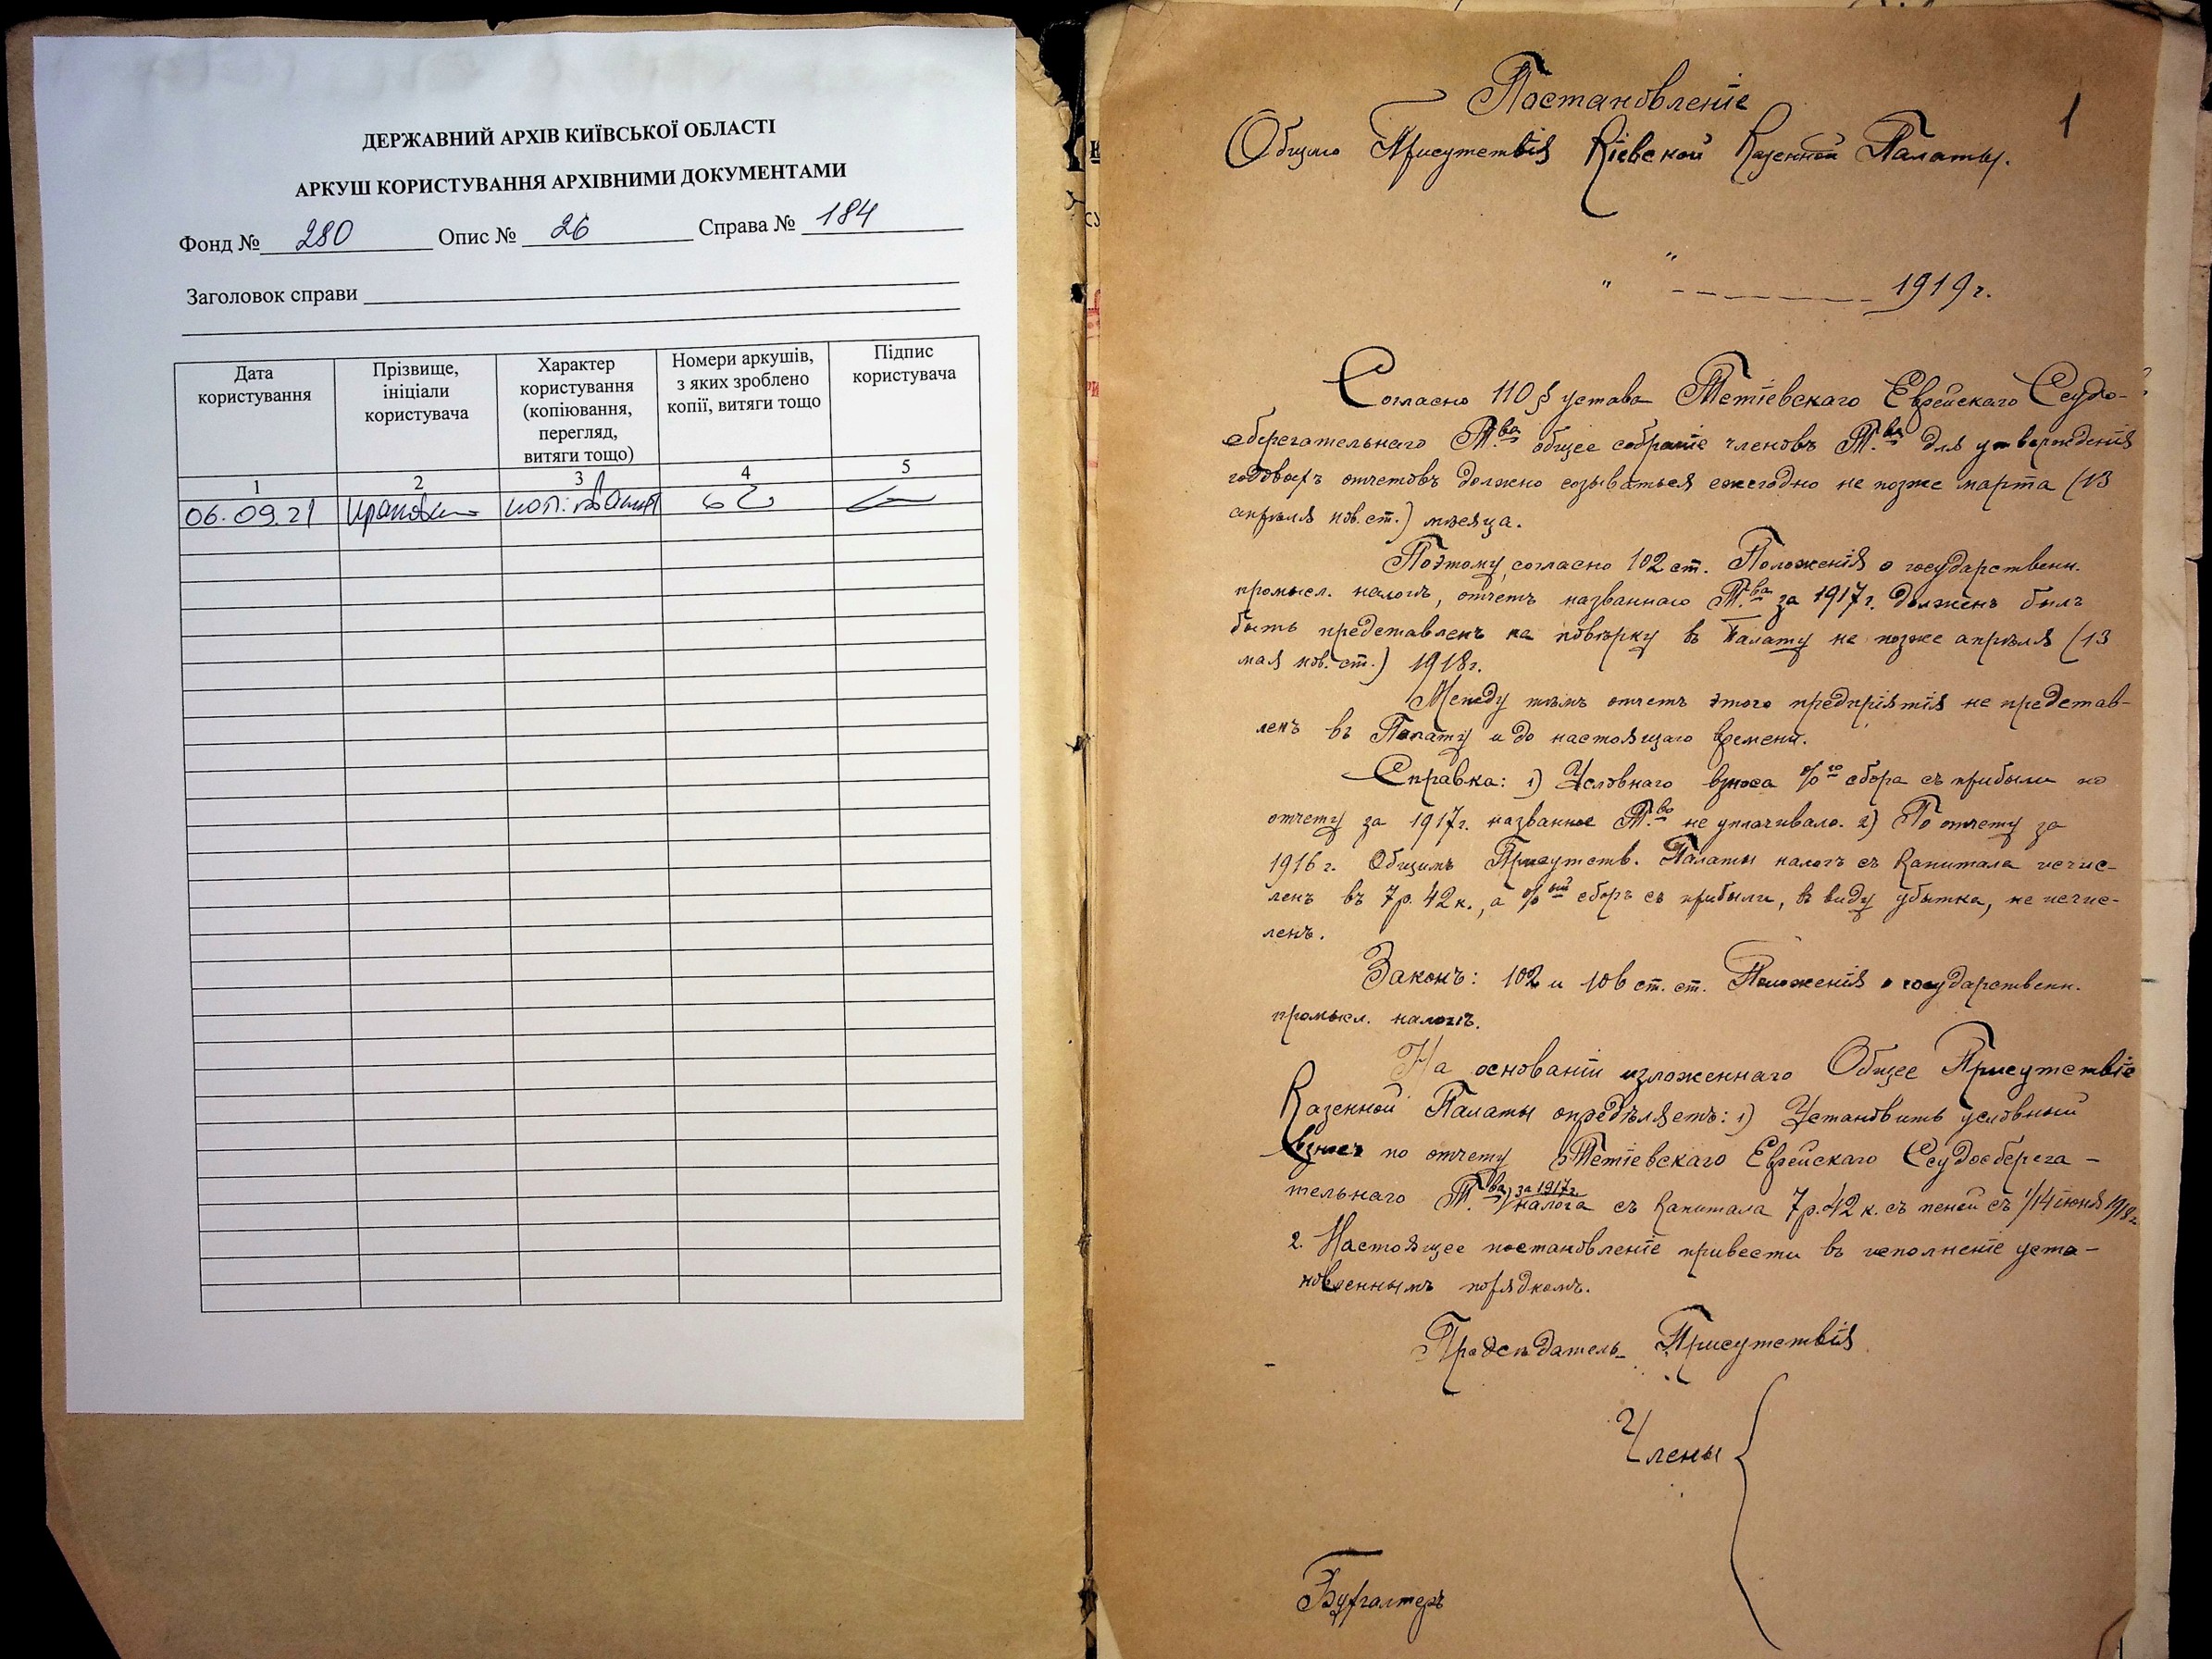 ДЕРЖАВНИЙ АРХІВ КИЇВСЬКОЇ ОБЛАСТІ
АРКУШ КОРИСТУВАННЯ АРХІВНИМИ ДОКУМЕНТАМИ
Фонд № 280 Опис № 26 Справа № 184
Заголовок справи
Дата користування
Прізвище, ініціали користувача
Характер користування (копіювання, перегляд, витяги тощо)
Номери аркушів, з яких зроблено копії, витяги тощо
Підпис користувача
1 2 3 4 5
06.09.21
1
Постановленіе
Общаго Присутствія Кіевской Казенной Палаты.
" " 1919 г.
Согласно 110 § устава Тетіевскаго Еврейскаго Ссудо-
сберегательнаго Т.ва общее собраніе членовъ Т.ва для утвержденія
годовыхъ отчетовъ должно созываться ежегодно не позже марта (13
апрѣля нов. ст.) мѣсяца.
Поэтому, согласно 102 ст. Положенія о государственн.
промысл. налогѣ, отчетъ названнаго Т.ва за 1917 г. долженъ былъ
быть представленъ на повѣрку въ Палату не позже апрѣля (13
мая нов. ст.) 1918 г.
Между тѣмъ отчетъ этого предпріятія не представ-
ленъ въ Палату и до настоящаго времени.
Справка: 1) Условнаго взноса %го сбора съ прибыли по
отчету за 1917 г. названное Т.во не уплачивало. 2) По отчету за
1916 г. Общимъ Присутств. Палаты налогъ съ капитала исчис-
ленъ въ 7 р. 42 к., а %ый сборъ съ прибыли, въ виду убытка, не исчис-
ленъ.
Законъ: 102 и 106 ст. ст. Положенія о государственн.
промысл. налогѣ.
На основаніи изложеннаго Общее Присутствіе
Казенной Палаты опредѣляетъ: 1) Установить условный
взносъ по отчету Тетіевскаго Еврейскаго Ссудосберега-
тельнаго Т.ва за 1917 г. налога съ капитала 7 р. 42 к. съ пеней съ 1/14 іюня 1918 г.
2. Настоящее постановленіе привести въ исполненіе уста-
новленнымъ порядкомъ.
Предсѣдатель Присутствія
Члены
Бухгалтеръ